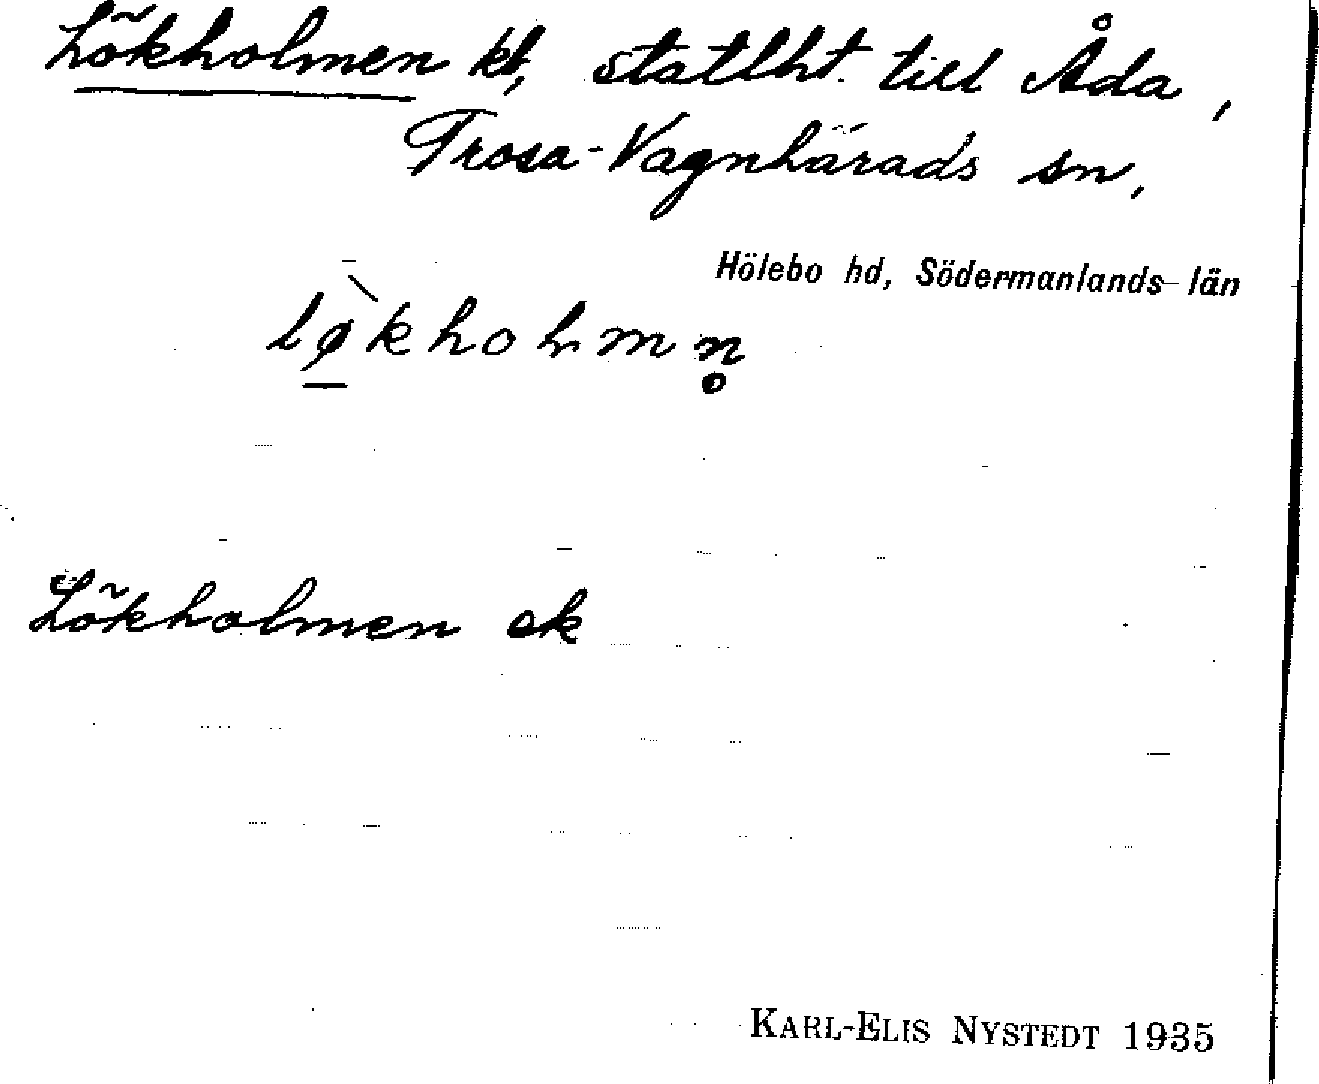 Lökholmen kt, statlht. till Åda,
Trosa-Vagnhärads sn,
Hölebo hd, Södermanlands län
lø̱̀kholmn̥
Lökholmen ek
KARL-ELIS NYSTEDT 1935